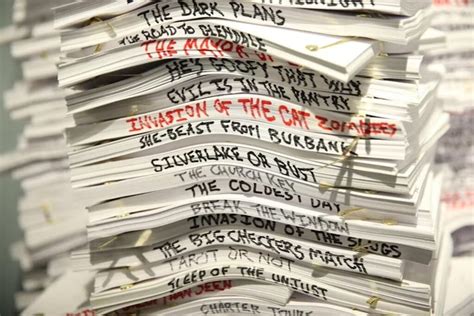 THE DARK PLANS
THE ROAD TO GLENDALE
THE MAYOR OF
HE'S GOOFY THAT WAY
EVIL IS IN THE PANTRY
INVASION OF THE CAT ZOMBIES
SHE-BEAST FROM BURBANK
SILVERLAKE OR BUST
THE CHURCH KEY
THE COLDEST DAY
BREAK THE WINDOW
INVASION OF THE SLUGS
THE BIG CHECKERS MATCH
TAROT OR NOT
SLEEP OF THE UNJUST
THAN SEEN
CHARTER TOURS